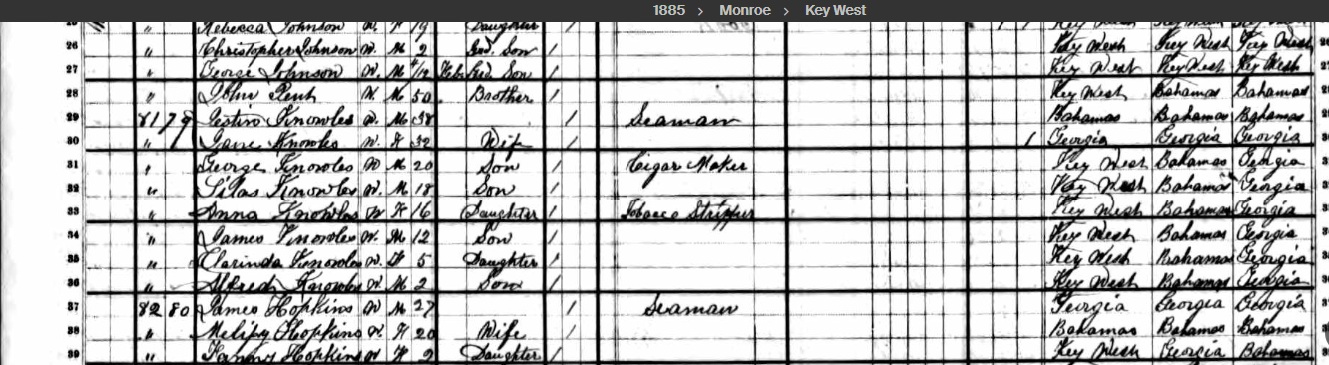 1885 > Monroe > Key West
Rebecca Johnson W. F 19 Daughter Key West Key West
26 " Christopher Johnson W. M 2 Grd. Son / Key West Key West Key West
27 " George Johnson W. M /12 Feb Grd Son / Key West Key West Key West
28 " John W. M 50 Brother / Key West Bahamas Bahamas
29 81 79 Knowles W. M 38 / Seaman Bahamas Bahamas Bahamas
30 " Jane Knowles W. F 32 Wife / 1 Georgia Georgia Georgia
31 " George Knowles W M 20 Son / Cigar Maker Key West Bahamas Georgia
32 " Silas Knowles W. M 18 Son / Key West Bahamas Georgia
33 " Anna Knowles W F 16 Daughter / Tobacco Stripper Key West Bahamas Georgia
34 " James Knowles W. M 12 Son / Key West Bahamas Georgia
35 " Clarinda Knowles W. F 5 Daughter / Key West Bahamas Georgia
36 " Alfred Knowles W. M 2 Son / Key West Bahamas Georgia
37 82 80 James Hopkins W M 27 / Seaman Georgia Georgia Georgia
38 " Hopkins W. F 20 Wife / Bahamas Bahamas Bahamas
39 " Hopkins W F 2 Daughter / Key West Georgia Bahamas